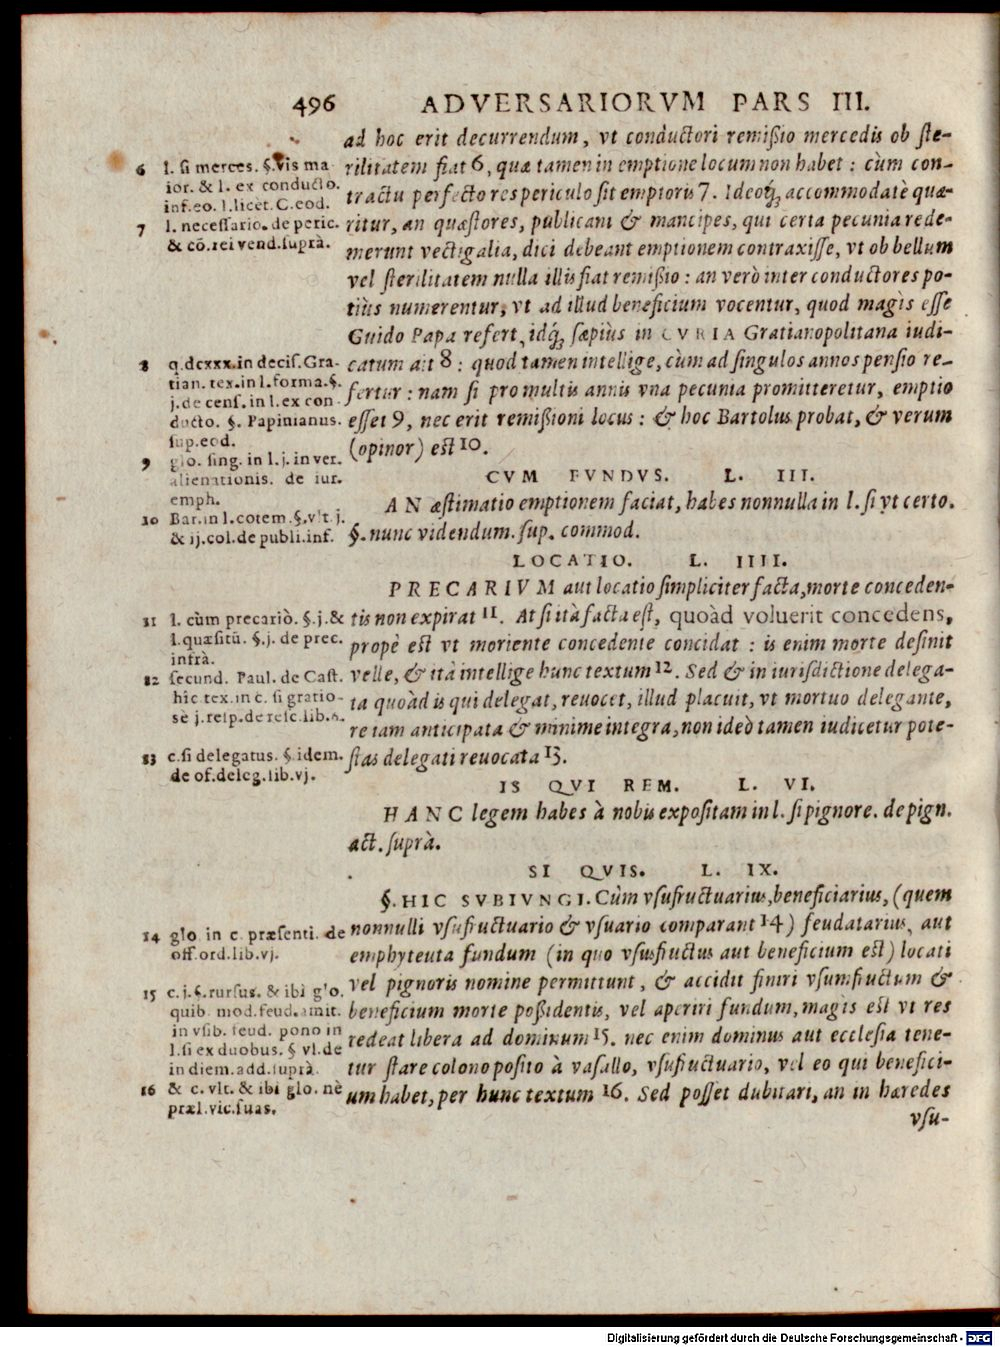 496 ADVERSARIORVM PARS III.
ad hoc erit decurrendum, vt conductori remißio mercedis ob ſte-
rilitatem fiat 6, quæ tamen in emptione locum non habet : cùm con-
tractu perfecto res periculo ſit emptoris 7. Ideoq́; accommodatè quæ-
ritur, an quæſtores, publicani & mancipes, qui certa pecunia rede-
merunt vectigalia, dici debeant emptionem contraxiſſe, vt ob bellum
vel ſterilitatem nulla illis fiat remißio : an verò inter conductores po-
tiùs numerentur, vt ad illud beneficium vocentur, quod magìs eſſe
Guido Papa refert, idq́; ſæpiùs in CVRIA Gratianopolitana iudi-
catum ait 8 : quod tamen intellige, cùm ad ſingulos annos penſio re-
fertur : nam ſi pro multis annis vna pecunia promitteretur, emptio
eſſet 9, nec erit remißioni locus : & hoc Bartolus probat, & verum
(opinor) eſt 10.
CVM FVNDVS. L. III.
AN æſtimatio emptionem faciat, habes nonnulla in l. ſi vt certo.
§. nunc videndum. ſup. commod.
LOCATIO. L. IIII.
PRECARIVM aut locatio ſimpliciter facta, morte conceden-
tis non expirat 11. At ſi ità facta eſt, quoàd voluerit concedens,
propè eſt vt moriente concedente concidat : is enim morte deſinit
velle, & ità intellige hunc textum 12. Sed & in iuriſdictione delega-
ta quoàd is qui delegat, reuocet, illud placuit, vt mortuo delegante,
re iam anticipata & minime integra, non ideò tamen iudicetur pote-
ſtas delegati reuocata 13.
IS QVI REM. L. VI.
HANC legem habes à nobis expoſitam in l. ſi pignore. de pign.
act. ſuprà.
SI QVIS. L. IX.
§. HIC SVBIVNGI. Cùm vſufructuarius, beneficiarius, (quem
nonnulli vſufructuario & vſuario comparant 14) feudatarius, aut
emphyteuta fundum (in quo vſusfructus aut beneficium eſt) locati
vel pignoris nomine permittunt, & accidit finiri vſumfructum &
beneficium morte poßidentis, vel aperiri fundum, magìs eſt vt res
redeat libera ad dominum 15. nec enim dominus aut eccleſia tene-
tur ſtare colono poſito à vaſallo, vſufructuario, vel eo qui benefici-
um habet, per hunc textum 16. Sed poſſet dubitari, an in hæredes
vſu-
6 l. ſi merces. §. vis ma
ior. & l. ex conducto.
inf. eo. l. licèt. C. eod.
7 l. neceſſario. de peric.
& cō. rei vend. ſuprà.
8 q. dcxxx. in deciſ. Gra-
tian. tex. in l. forma. §.
j. de cenſ. in l. ex con-
ducto. §. Papinianus.
ſup. eod.
9 glo. ſing. in l. j. in ver.
alienationis. de iur.
emph.
10 Bar. in l. cotem. §. vlt. j.
& ij. col. de publi. inf.
11 l. cùm precariò. §. j. &
l. quæſitū. §. j. de prec.
infrà.
12 ſecund. Paul. de Caſt.
hîc. tex. in c. ſi gratio-
sè j. reſp. de reſc. lib. 6.
13 c. ſi delegatus. §. idem.
de of. deleg. lib. vj.
14 glo. in c. præſenti. de
off. ord. lib. vj.
15 c. j. §. rurſus. & ibi glo.
quib. mod. feud. amit.
in vſib. feud. pono in
l. ſi ex duobus. § vl. de
in diem. add. ſuprà.
16 & c. vlt. & ibi glo. nè
præl. vic. ſuas.
Digitalisierung gefördert durch die Deutsche Forschungsgemeinschaft - DFG